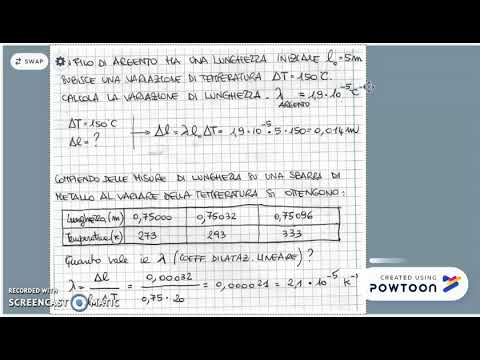 SWAP
FILO DI ARGENTO HA UNA LUNGHEZZA INIZIALE l₀ = 5m
SUBISCE UNA VARIAZIONE DI TEMPERATURA ΔT = 150°C.
CALCOLA LA VARIAZIONE DI LUNGHEZZA. λ = 1,9 · 10⁻⁵ °C⁻¹
ARGENTO
ΔT = 150°C
Δl = ?
→ Δl = λ l₀ ΔT = 1,9 · 10⁻⁵ · 5 · 150 = 0,014 m
COMPIENDO DELLE MISURE DI LUNGHEZZA SU UNA SBARRA DI
METALLO AL VARIARE DELLA TEMPERATURA SI OTTENGONO:
Lunghezza (m) 0,75000 0,75032 0,75096
Temperatura (K) 273 293 333
Quanto vale λ (COEFF. DILATAZ. LINEARE) ?
λ = Δl / ΔT = 0,00032 / 0,75 · 20 = 0,000021 = 2,1 · 10⁻⁵ K⁻¹
RECORDED WITH
SCREENCAST MATIC
CREATED USING
POWTOON